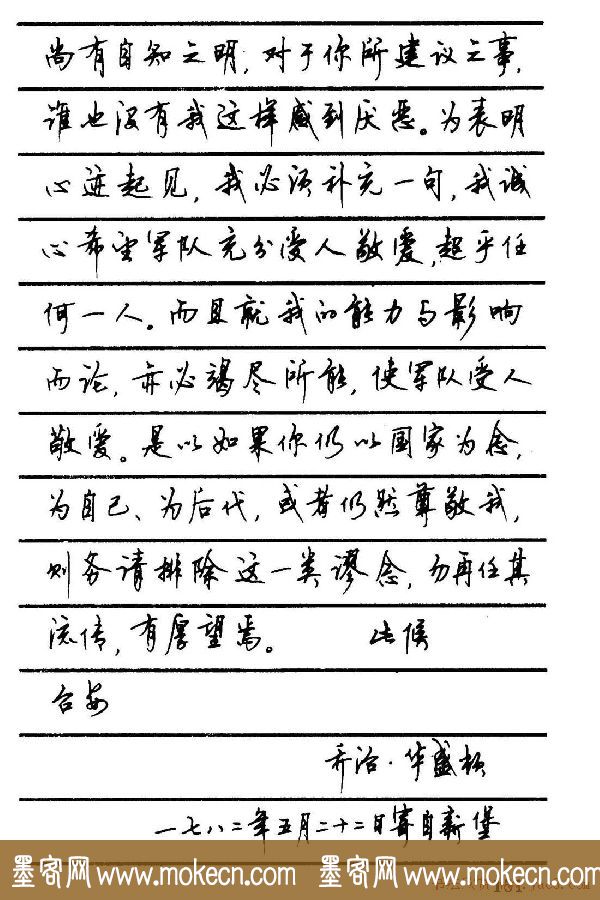 尚有自知之明，对于你所建议之事，
谁也没有我这样感到厌恶。为表明
心迹起见，我必须补充一句，我诚
心希望军队充分受人敬爱，超乎任
何一人。而且就我的能力与影响
而论，亦必竭尽所能，使军队受人
敬爱。是以如果你仍以国家为念，
为自己、为后代，或者仍然尊敬我，
则务请排除这一类谬念，勿再任其
流传，有厚望焉。 此候
台安
乔治·华盛顿
一七八二年五月二十二日寄自新堡
墨客网 www.mokecn.com 墨客网 www.mokecn.com